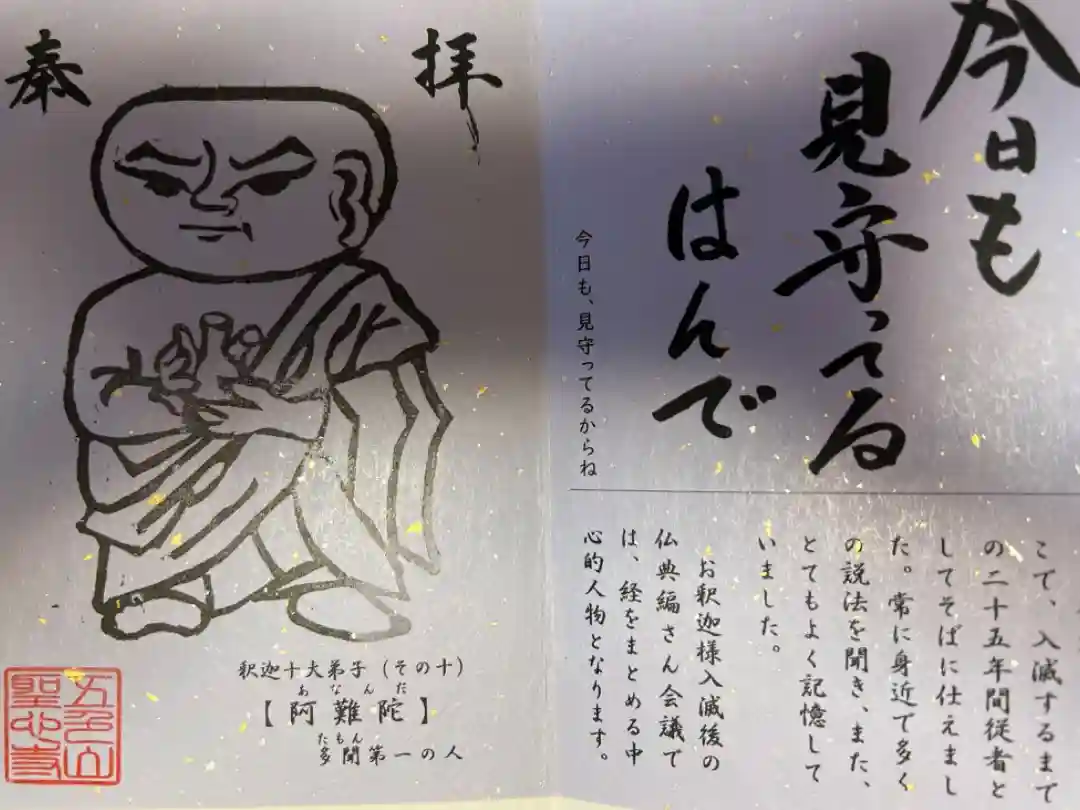 今日も
見守ってる
はんで
今日も、見守ってるからね
こで、入滅するまで
の二十五年間従者と
してそばに仕えまし
た。常に身近で多く
の説法を聞き、また、
とてもよく記憶して
いました。
お釈迦様入滅後の
仏典編さん会議で
は、経をまとめる中
心的人物となります。
奉 拝
釈迦十大弟子（その十）
あなんだ
【阿難陀】
たもん
多聞第一の人